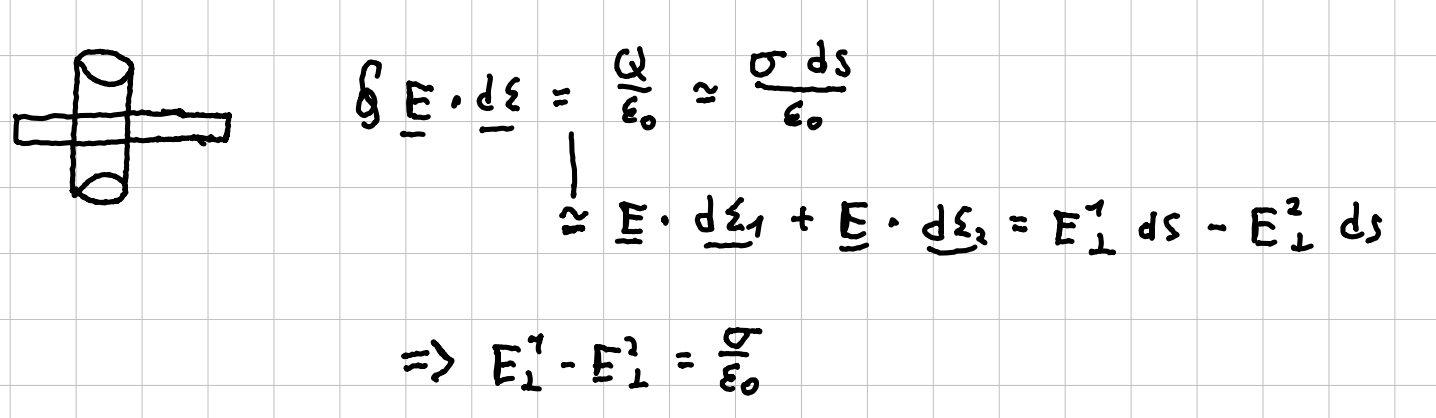 ∮ E · dΣ = Q/ε₀ ≃ σ ds/ε₀
≃ E · dΣ₁ + E · dΣ₂ = E⊥¹ ds - E⊥² ds
=> E⊥¹ - E⊥² = σ/ε₀